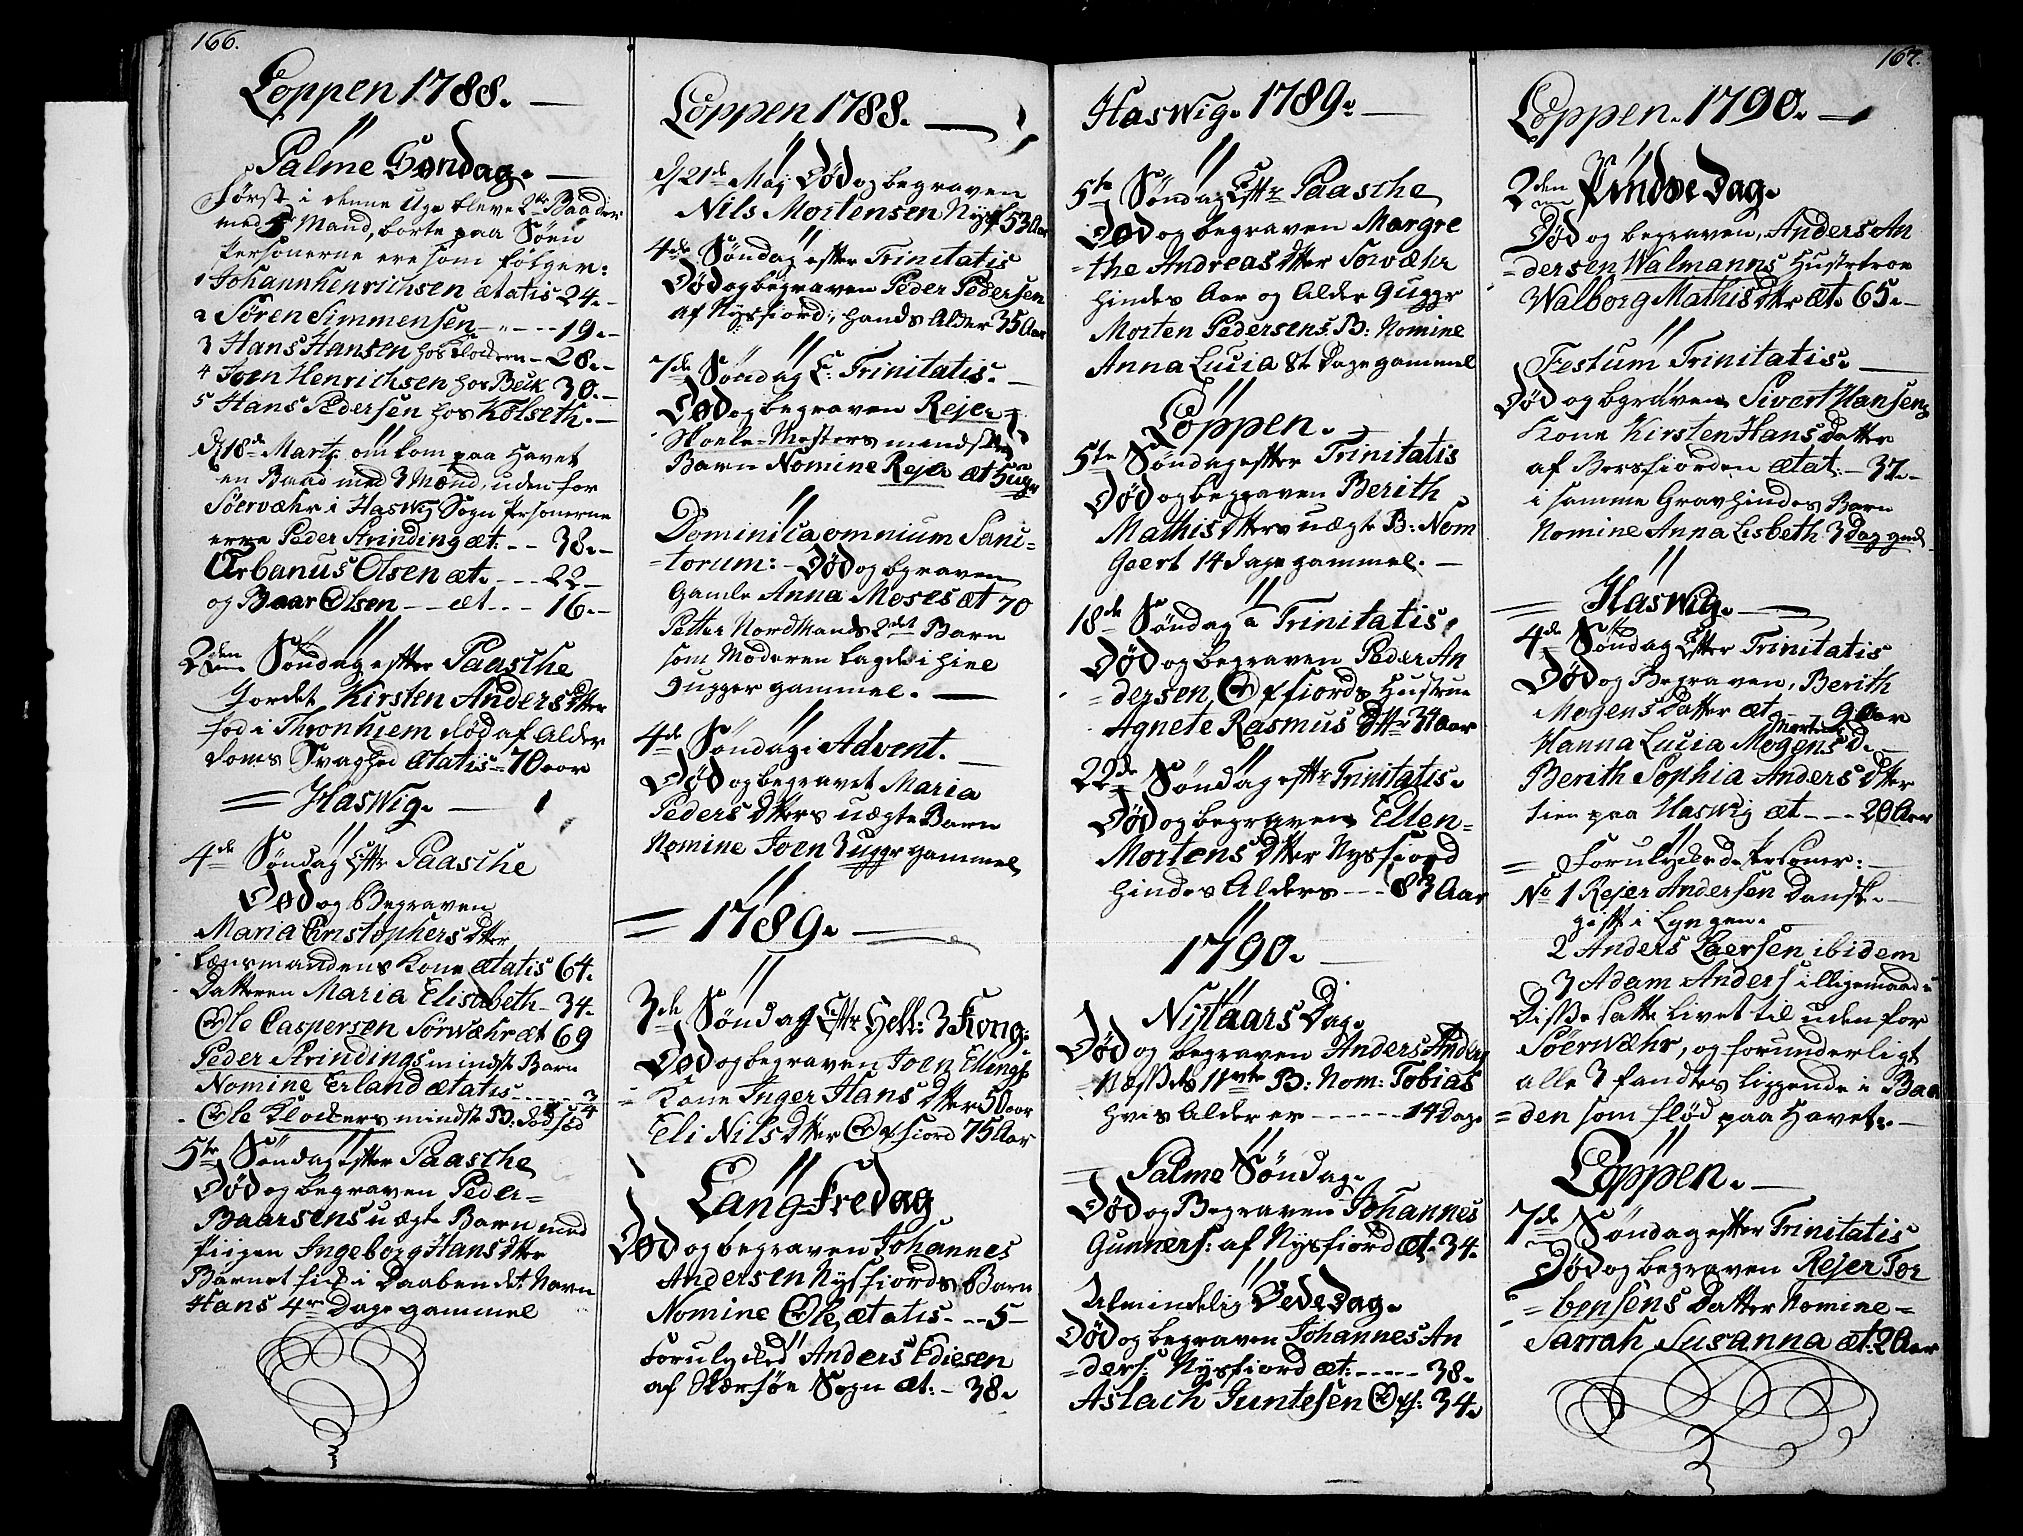 166.
Loppen 1788.
Palme Søndag.
Først i denne Uge bleve 2de Baader
med 5 Mand, borte paa Søen
Personerne ere som følger:
1 Johann Henrichsen ætatis 24.
2 Søren Simmensen - - - 19.
3 Hans Hansen hos Klockern - 28.
4 Joen Henrichsen hos Beck 30.
5 Hans Pedersen hos Kolseth.
d 18de Martz omkom paa Havet
en Baad med 3 Mænd, uden for
Söervæhr i Haswig Sogn Personerne
erre Peder Strinding æt: - - 38.
Urbanus Olsen æt. - - - 22
og Baar Olsen - - æt - - - 16.
2den Søndag efter Paasche
Jordet Kirsten Anders Dtter
fød i Thronhiem død af Alder
doms Svaghed Ætatis 70 aar
Haswig.
4de Søndag Eftr Paasche
Død og Begraven
Maria Christophers Dtter
Lensmandens Kone ætatis 64.
Datteren Maria Elisabeth 34.
Ole Caspersen Sörvæhr æt 69
Peder Strindings mindste Barn
Nomine Erland ætatis - - - 3/4
Ole Klockers mindste B: dødfød
5te Søndag efter Paasche
Død og begraven Peder
Baarsens uægte Barn med
Piigen Ingeborg Hans Dtter
Barnet fick i Daaben det Navn
Hans 4re Dage gammel
Loppen 1788.
d 21de Maj Død og begraven
Nils Mortensen Nysf 53 Aar
4de Søndag efter Trinitatis
Død og begraven Peder Pedersen
af Nysfiord, hands Alder 35 Aar
7de Søndag E: Trinitatis.
Død og begraven Rejer
Skoele-Mesters mindste
Barn Nomine Rejer æt 5 uger
Dominica omnium Sanc
torum: Død og begraven
Gamle Anna Moses æt 70
Petter Nordmands 2det Barn
som Moderen lagde i hiel
9 uger gammel.
4de Søndag i Advent.
Død og begravet Maria
Peders Dtters uægte Barn
Nomine Joen 3 ugr gammel
1789.
3de Søndag Eftr Hell: 3 Kong:
Død og begraven Joen Ellings:
Kone Inger Hans Dtter 50 aar
Eli Nils Dtter Oxfiord 75 Aar
Lang Fredag
Død og begraven Johannes
Andersen Nysfiords Barn
Nomine Ole, ætatis - - - 5
Forulycked Anders Ediesen
af Skiersøe Sogn æt: - 38.
Haswig. 1789.
5te Søndag Eftr Paasche
Død og begraven Margre
the Andreas Dtter Sorvæhr
hindes Aar og Alder 9 uger
Morten Pedersens B: Nomine
Anna Lucia 8te Dage gammel
Loppen.
5te Søndag efter Trinitatis
Død og begraven Berith
Mathis Dtters uægte B: Nom
Geert 14 Dage gammel.
18de Søndag a Trinitatis
Død og begraven Peder An
dersen Oxfiords Hustrue
Agnete Rasmus Dttr 34 Aar
22de Søndag eftr Trinitatis.
Død og begraven Ellen
Mortens Dtter Nysfiord
hindes Alders - - - 83 Aar
1790.
Nyttaars Dag.
Død og begraven Anders Anders
Næsses 11vte B: Nom: Tobias
hvis Alder er - - - 14 Dage
Palme Søndag.
Død og Begraven Johannes
Gunners: af Nysfiord æt. 34.
Almindelig Bededag.
Død og begraven Johannes An
ders: Nysfiord æt: - - - 38.
Aslach Juntesen Oxf: 34.
167.
Loppen. 1790.
2den Pindse Dag.
Død og begraven, Anders An
dersen Walmanns Hustroe
Walborg Mathis Dttr æt. 65.
Festum Trinitatis.
Død og begraven Sivert Hansens
Kone Kirsten Hans Datter
af Bersfiorden ætat. 37.
i samme Grav hindes Barn
Nomine Anna Lisbeth 3 Dag gml
Haswig.
4de Søndag Efter Trinitatis
Død og Begraven, Berith
Mogens Datter æt 9 Aar
Mortens
Hanna Lucia Mogens D.
Berith Sophia Anders Dtter
tien paa Haswig æt - - - 20 Aar
Forulyckede Personer:
No 1 Rejer Andersen Danske
gift i Lyngen.
2 Anders Laersen ibidem
3 Adam Anders: i lligemaade
Disse satte livet til uden for
Söerwæhr, og forunderligt
alle 3 fandtes liggende i Baa
den som flød paa Havet.
Loppen.
7de Søndag efter Trinitatis
Død og begraven Rejer Tor
bensens Datter Nomine
Sarrah Susanna æt. 2 Aar